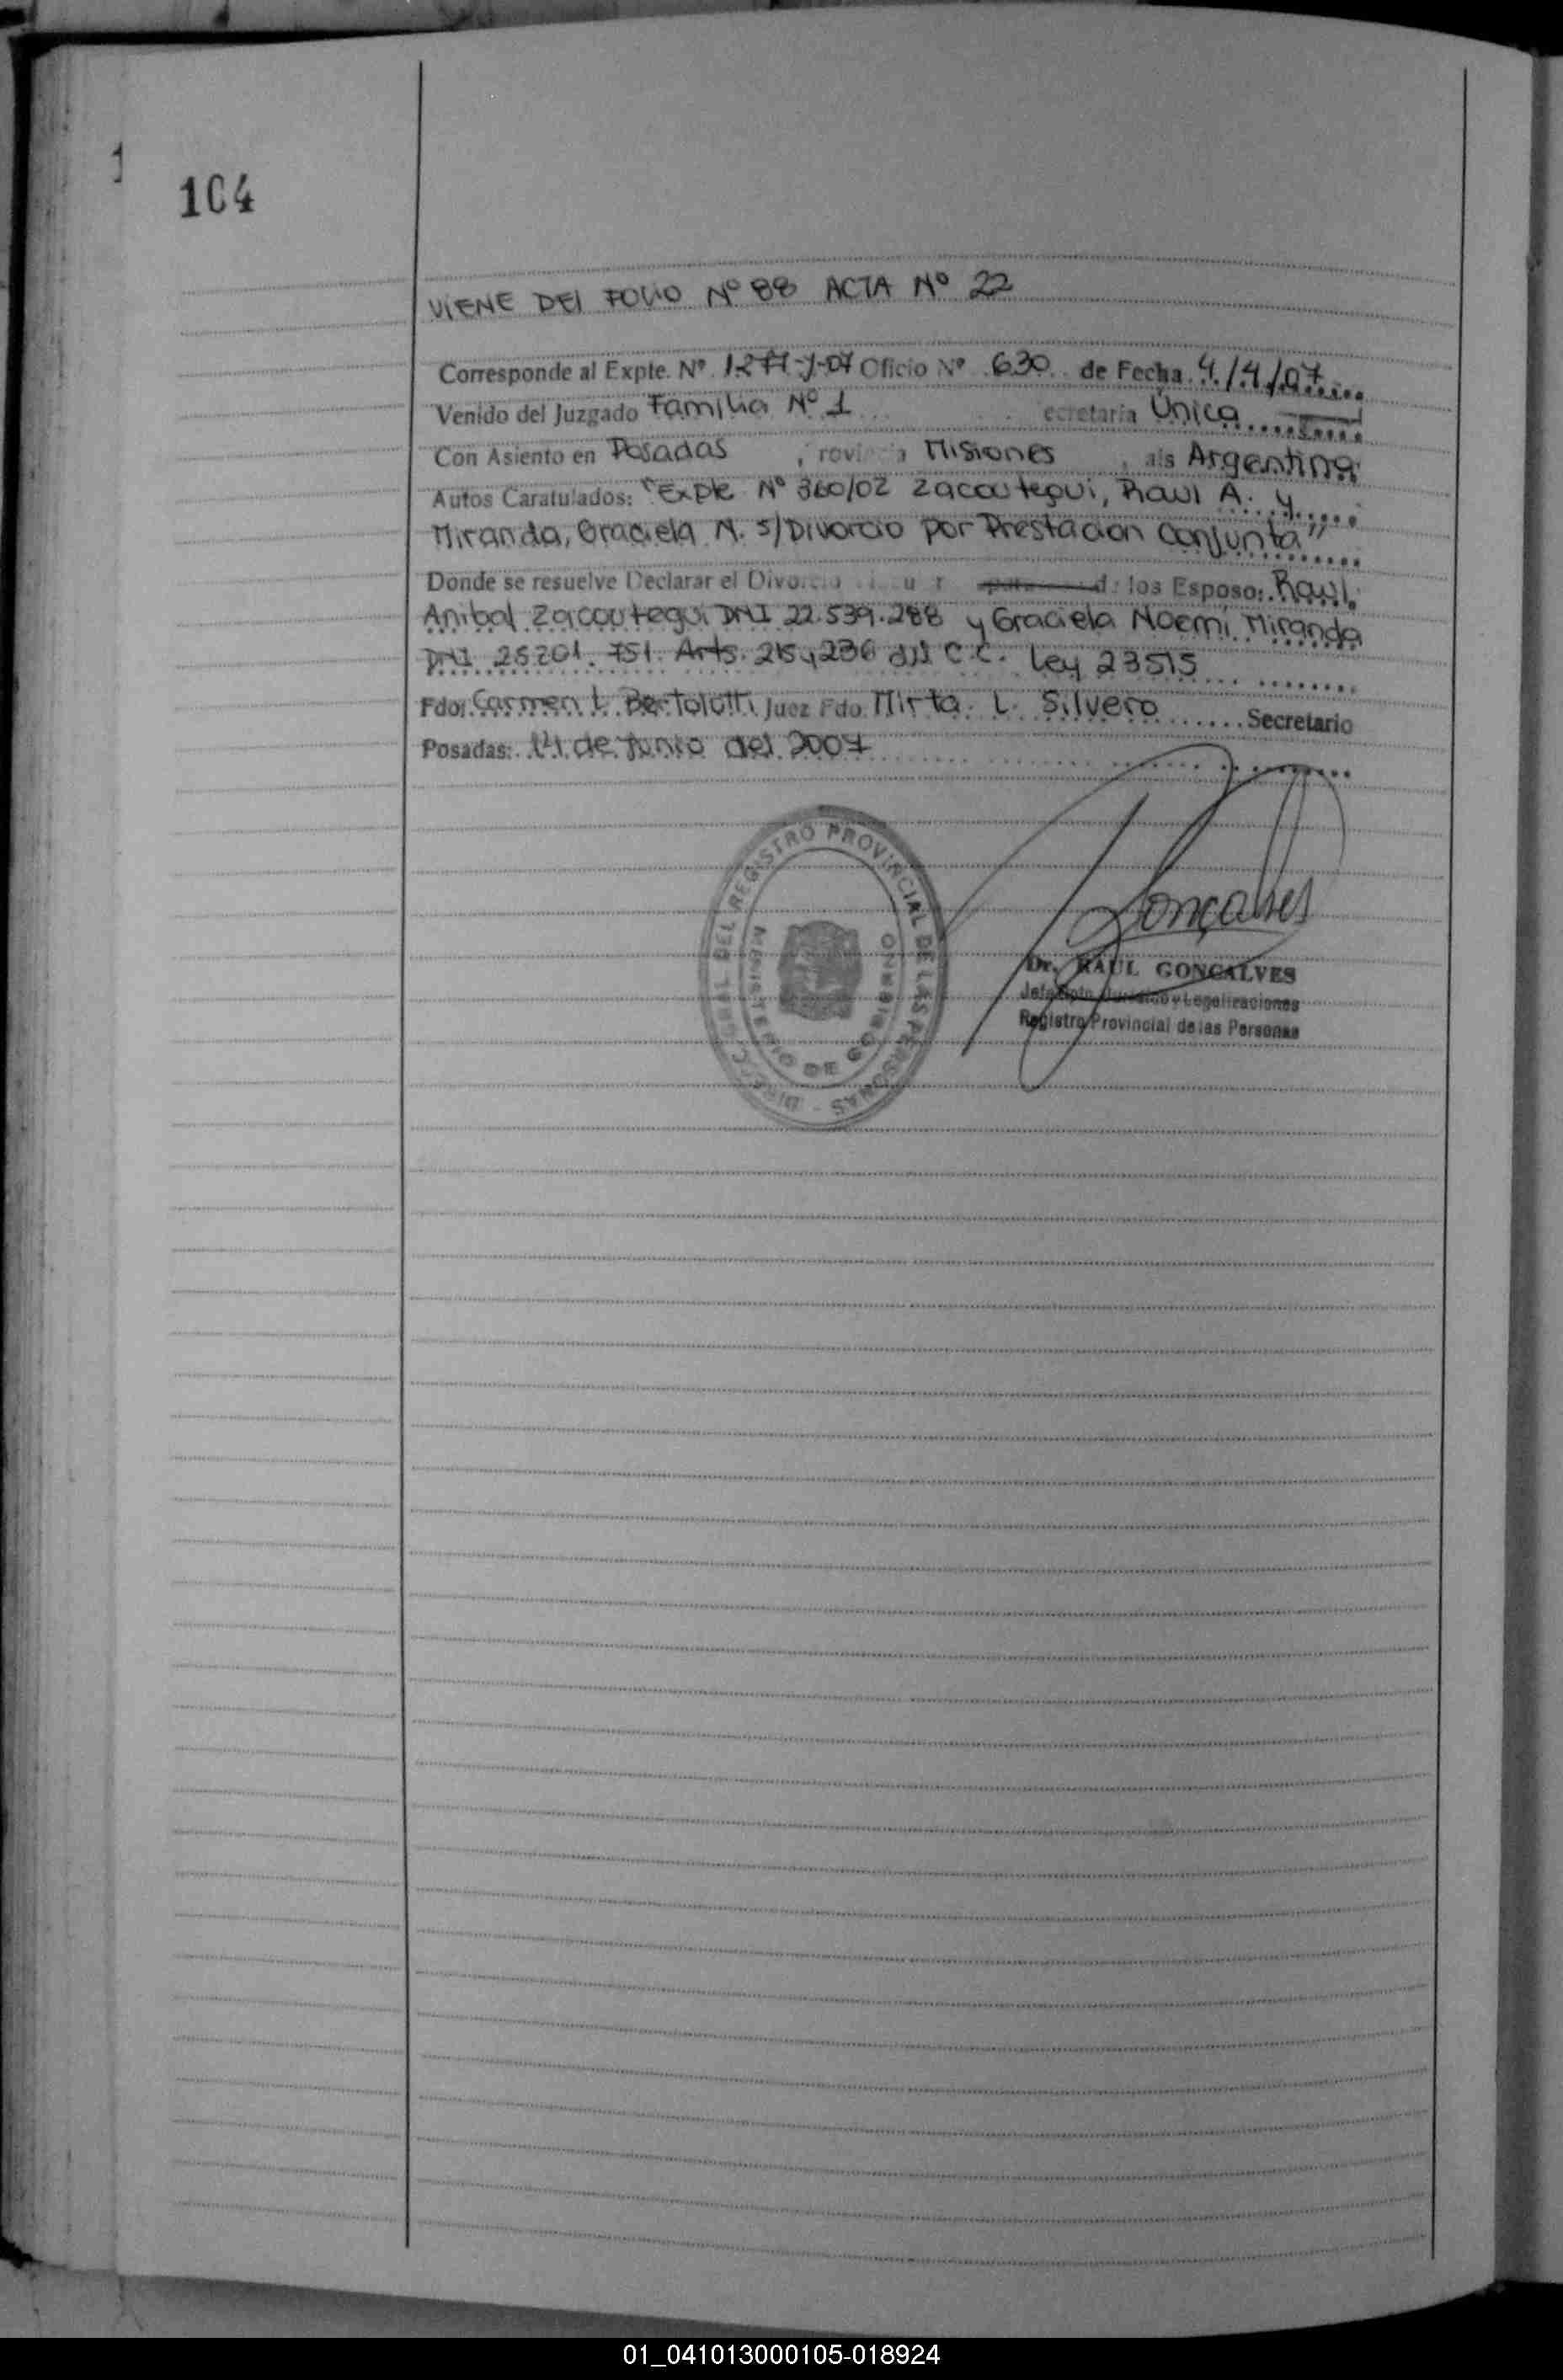 104
VIENE DEl FOLIO Nº 88 ACTA Nº 22
Corresponde al Expte. Nº 1277-J-07 Oficio Nº 630 de Fecha 4/4/07
Venido del Juzgado Familia Nº 1 ecretaría Única
Con Asiento en Posadas , rovincia Misiones , aís Argentina
Autos Caratulados: "Expte Nº 360/02 Zacoutegui, Raul A. y
Miranda, Graciela N. s/Divorcio por Prestacion Conjunta"
Donde se resuelve Declarar el Divorcio de los Esposo: Raul
Anibal Zacoutegui DNI 22.539.288 y Graciela Noemí Miranda
DNI 25.201.751. Arts. 215 y 236 del C.C. Ley 23515
Fdo: Carmen L. Bertolotti Juez Fdo. Mirta L. Silvero Secretario
Posadas: 14 de Junio del 2007
DIRECC. GRAL DEL REGISTRO PROVINCIAL DE LAS PERSONAS -
MINISTERIO DE GOBIERNO
Gonçalves
Dr. RAUL GONÇALVES
Jefe Dpto. Jurídico y Legalizaciones
Registro Provincial de las Personas
01_041013000105-018924